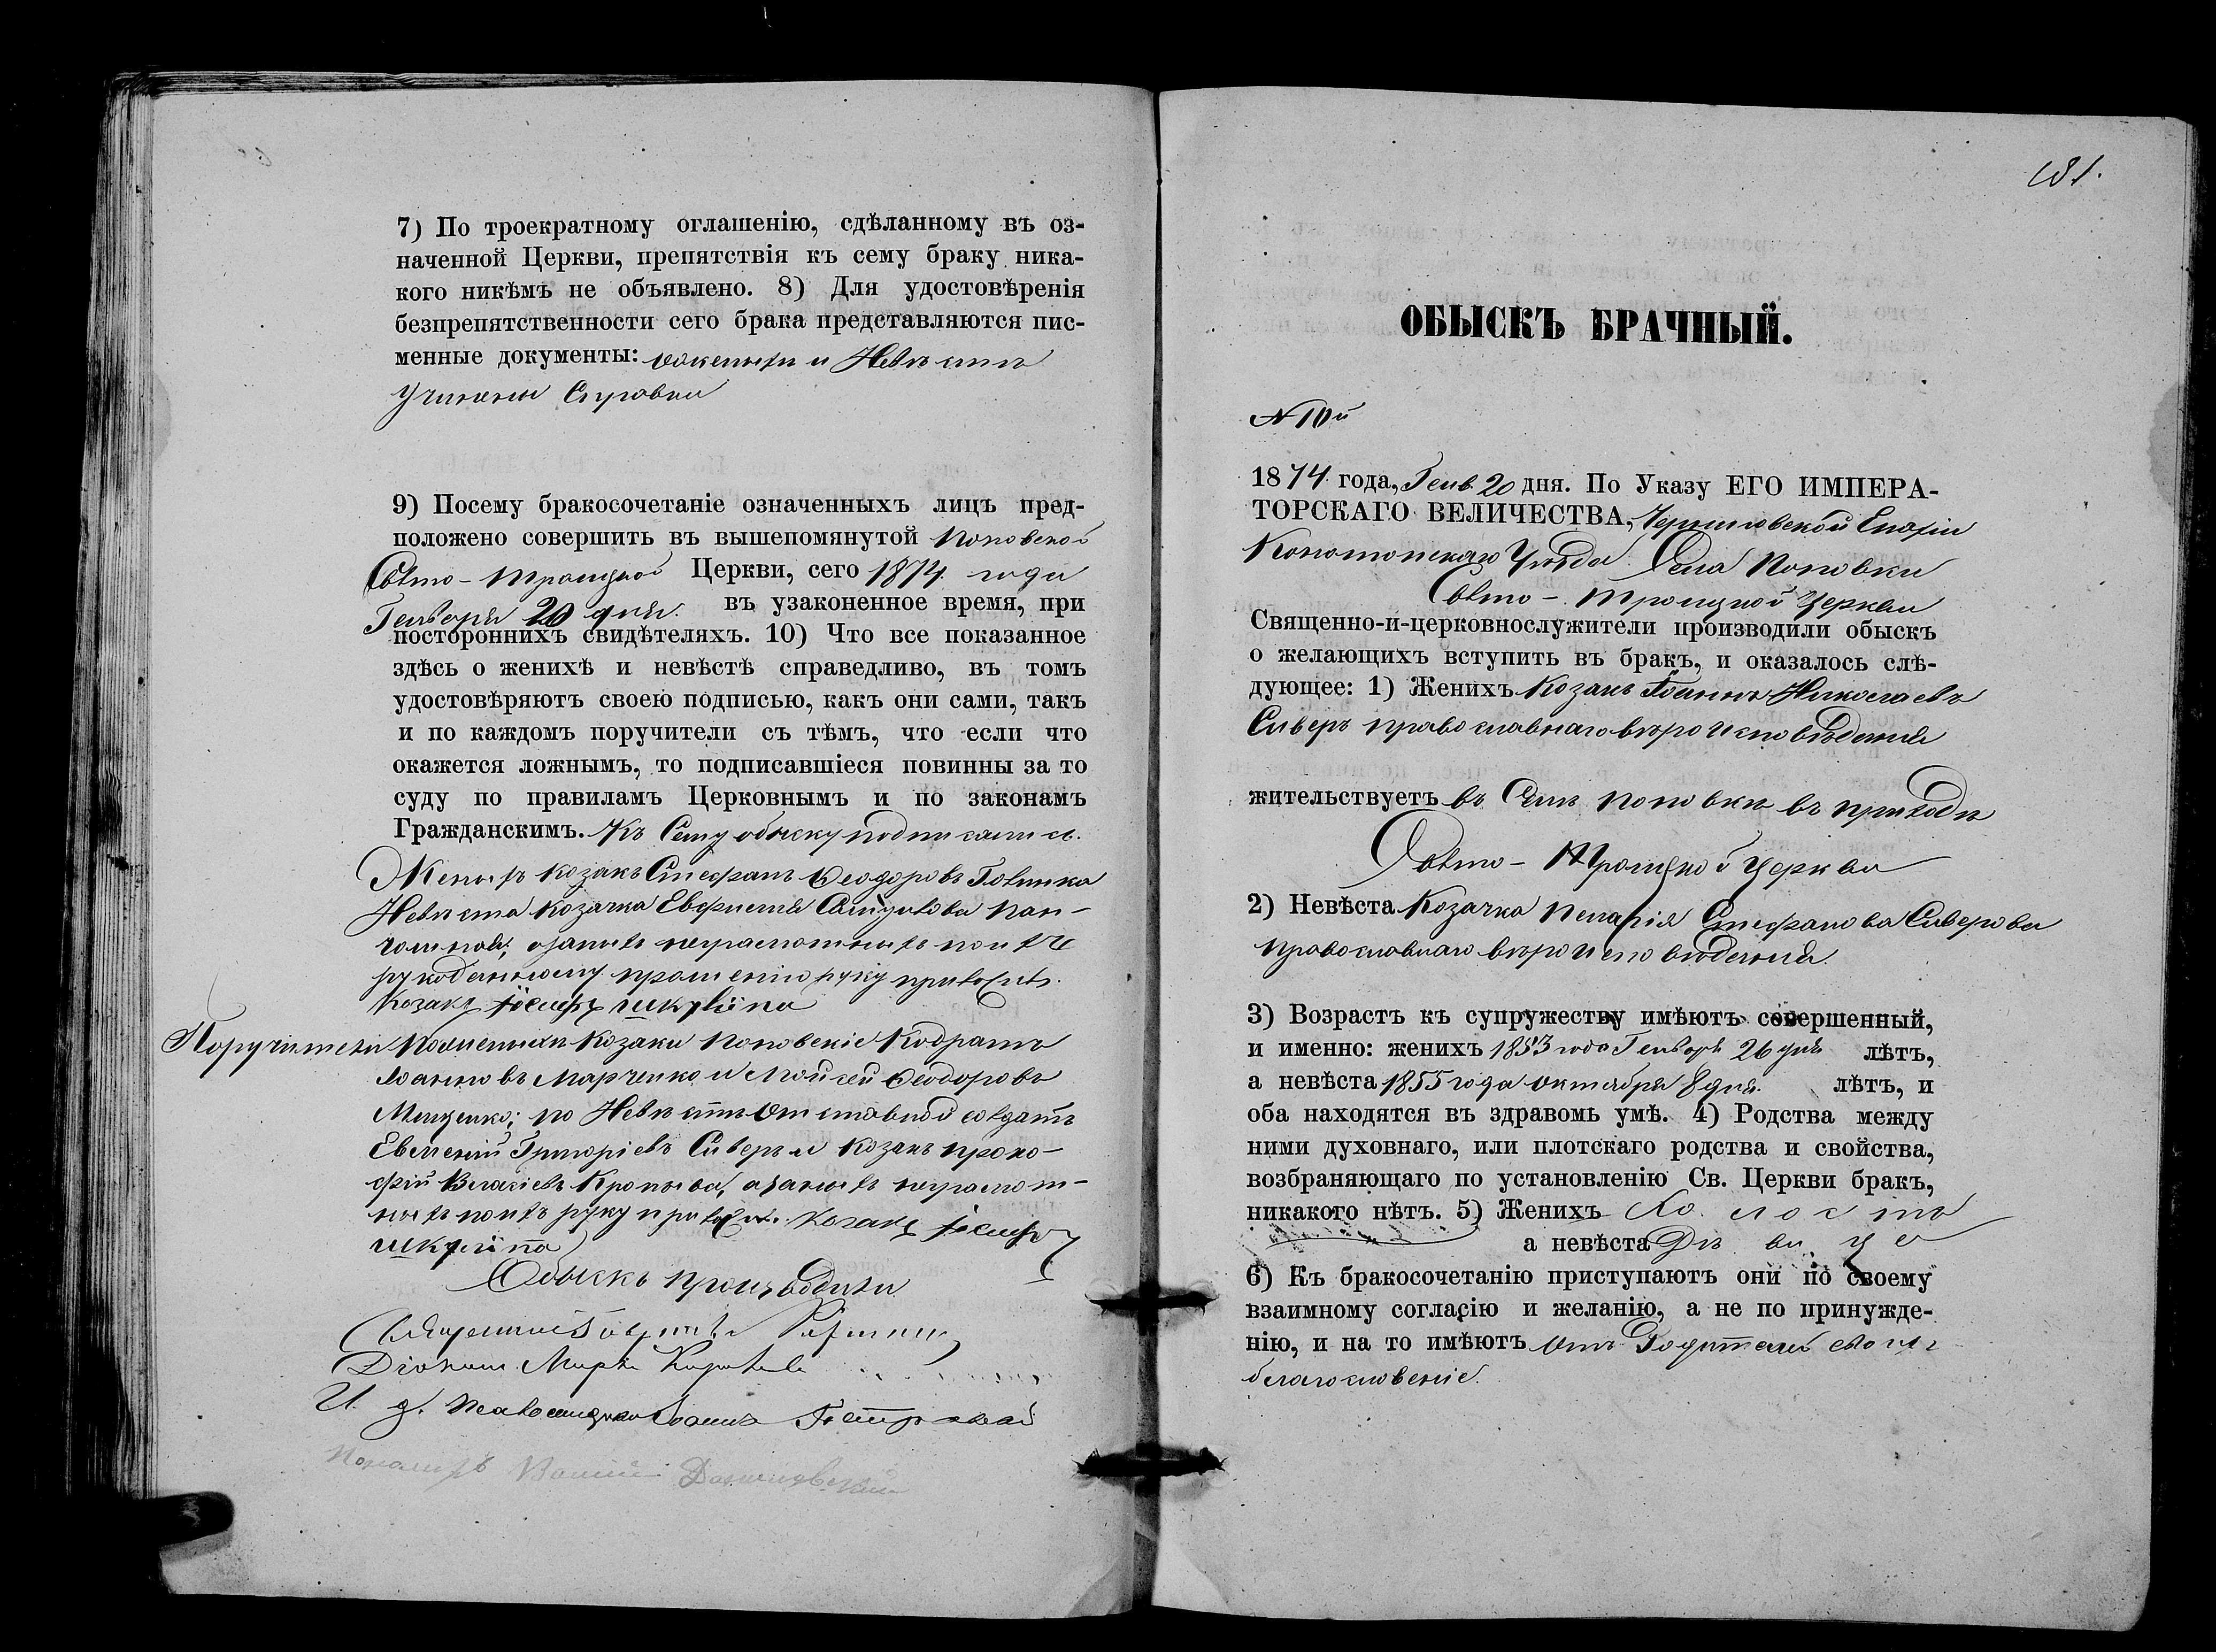 7) По троекратному оглашенію, сдѣланному въ оз-
наченной Церкви, препятствія къ сему браку ника-
кого никѣмъ не объявлено. 8) Для удостовѣренія
безпрепятственности сего брака представляются пис-
менные документы: и Невѣстѣ
учинены Справки
9) Посему бракосочетаніе означенныхъ лицъ пред-
положено совершить въ вышепомянутой Поповской
Свято-Троицкой Церкви, сего 1874 года
Генваря 20 дня. въ узаконенное время, при
постороннихъ свидѣтеляхъ. 10) Что все показанное
здѣсь о женихѣ и невѣстѣ справедливо, въ томъ
удостовѣряютъ своею подписью, какъ они сами, такъ
и по каждомъ поручители съ тѣмъ, что если что
окажется ложнымъ, то подписавшіеся повинны за то
суду по правиламъ Церковнымъ и по законамъ
Гражданскимъ. Къ Сему обыску подписались.
Женихъ козакъ Стефанъ Ѳеодоровъ
Невѣста козачка Евфимія
а за нихъ неграмотныхъ по ихъ
рукоданному прошенію руку приложилъ
козакъ іосифъ
Поручители по женихѣ Козаки Поповскіе Кодратъ
Іоанновъ Марченко и Мойсей Ѳеодоровъ
по Невѣстѣ Отставной солдатъ
Евменій Григоріевъ Сиверъ и козакъ Проко-
фій Власіевъ Кропыва, а за нихъ неграмот-
ныхъ по ихъ руку приложилъ козакъ іосифъ
Обыскъ производили
Священникъ
Діаконъ Марко
И. д. Псаломщика Іоаннъ
Пономарь
181.
ОБЫСКЪ БРАЧНЫЙ.
N 10й
1874 года, Генв. 20 дня. По Указу ЕГО ИМПЕРА-
ТОРСКАГО ВЕЛИЧЕСТВА, Черниговской Епархіи
Конотопскаго Уѣзда Села Поповки
Свято-Троицкой Церкви
Священно-и-церковнослужители производили обыскъ
о желающихъ вступить въ бракъ, и оказалось слѣ-
дующее: 1) Женихъ Козакъ Іоаннъ Николаевъ
Сиверъ православнаго вѣроисповѣданія
жительствуетъ въ Селѣ Поповкѣ въ приходѣ
Свято-Троицкой Церкви
2) Невѣста Козачка Пелагія Стефанова Сиверова
православнаго вѣроисповѣданія.
3) Возрастъ къ супружеству имѣютъ совершенный,
и именно: женихъ 1853 года Генваря 26 дня лѣтъ,
а невѣста 1855 года Октября 8 дня. лѣтъ, и
оба находятся въ здравомъ умѣ. 4) Родства между
ними духовнаго, или плотскаго родства и свойства,
возбраняющаго по установленію Св. Церкви бракъ,
никакого нѣтъ. 5) Женихъ Холостъ
а невѣста Дѣвица
6) Къ бракосочетанію приступаютъ они по своему
взаимному согласію и желанію, а не по принужде-
нію, и на то имѣютъ Отъ Родителей своихъ
благословеніе.